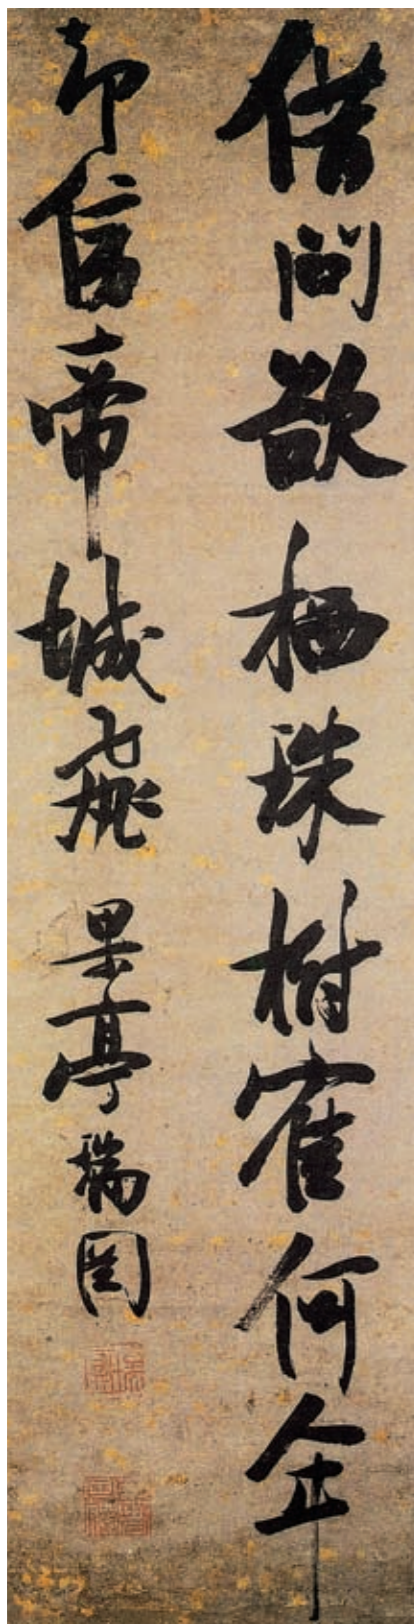 借問欲栖珠樹寉何年
却信帝城飛 果亭瑞圖